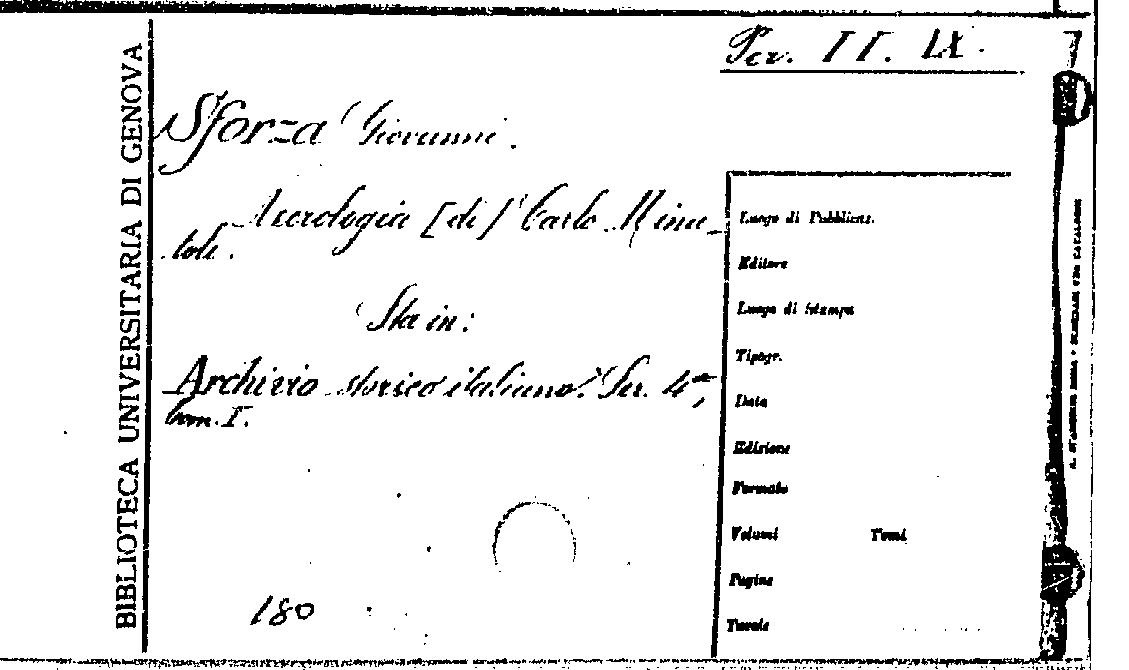 Per. II. IX.
BIBLIOTECA UNIVERSITARIA DI GENOVA
Sforza Giovanni.
Necrologia [di] Carlo Minu_
toli.
Sta in:
Archivio storico italiano. Ser. 4ª,
tom. I.
180
Luogo di Pubblicaz.
Editore
Luogo di Stampa
Tipogr.
Data
Edizione
Formato
Volumi Tomi
Pagine
Tavole